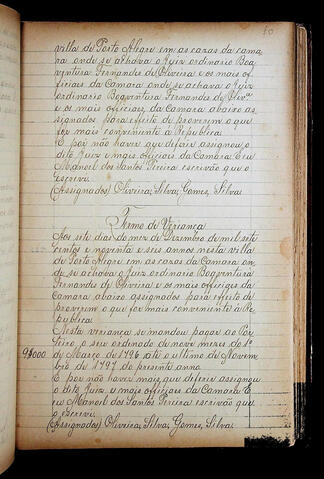 50
villa de Porto Alegre em as cazas da cama
ra onde se achava o Juiz ordinario Boa
ventura Fernandes de Oliveira e os mais of
ficiaes da Camara onde se achava o Juiz
ordinario Boaventura Fernandes de Olivrª
e os mais officiaes da Camara abaixo as
signados para effeito de proverem o que
for mais conveniente á Republica
E por não haver que deferir assignou o
dito Juiz e mais officiaes da Camara E eu
Manoel dos Santos Pereira escrivão que o
Escrevi.
(Assignados) Oliveira; Silva; Gomes, Silva
Termo de Veriança
Aos sete dias do mez de Dezembro de mil sete
centos e noventa e seis annos nesta villa
de Porto Alegre em as cazas da Camara on
de se achava o Juiz ordinario Boaventura
Fernandes de Oliveira e os mais officiaes da
Camara abaixo assignados para effeito de
proverem o que for mais conveniente a Re
publica.
Nesta veriança se mandou pagar ao Por
teiro, o seu ordenado de nove mezes do 1º
9$000 de Março de 1796 até o ultimo de Novem
bro de 1797 do presente anno
E por não haver mais que deferir assignou
o dito Juiz e mais officiaes da Camara E
eu Manoel dos Santos Pereira escrivão que
o escrevi.
(Assignados) Oliveira, Silva, Gomes, Silva